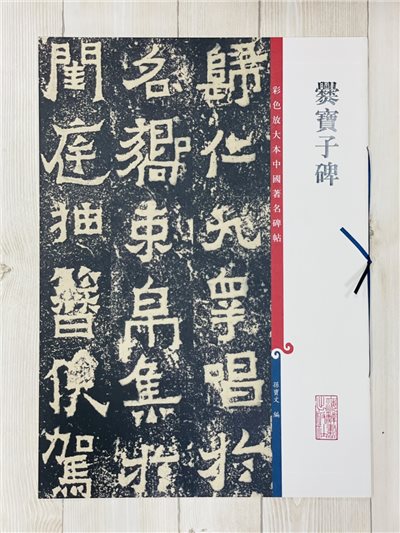 爨寶子碑
彩色放大本中國著名碑帖
孫寶文 編
歸仁九皋唱於
名響束帛集於
閨庭抽簪俟駕